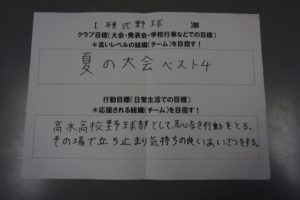 【 硬式野球 】部
クラブ目標(大会・発表会・学校行事などでの目標)
*高いレベルの組織(チーム)を目指す!
夏の大会 ベスト4
行動目標(日常生活での目標)
*応援される組織(チーム)を目指す!
高水高校野球部として、恥じなき行動をとる。
その場で立ち止まり気持ちの良いあいさつをする。